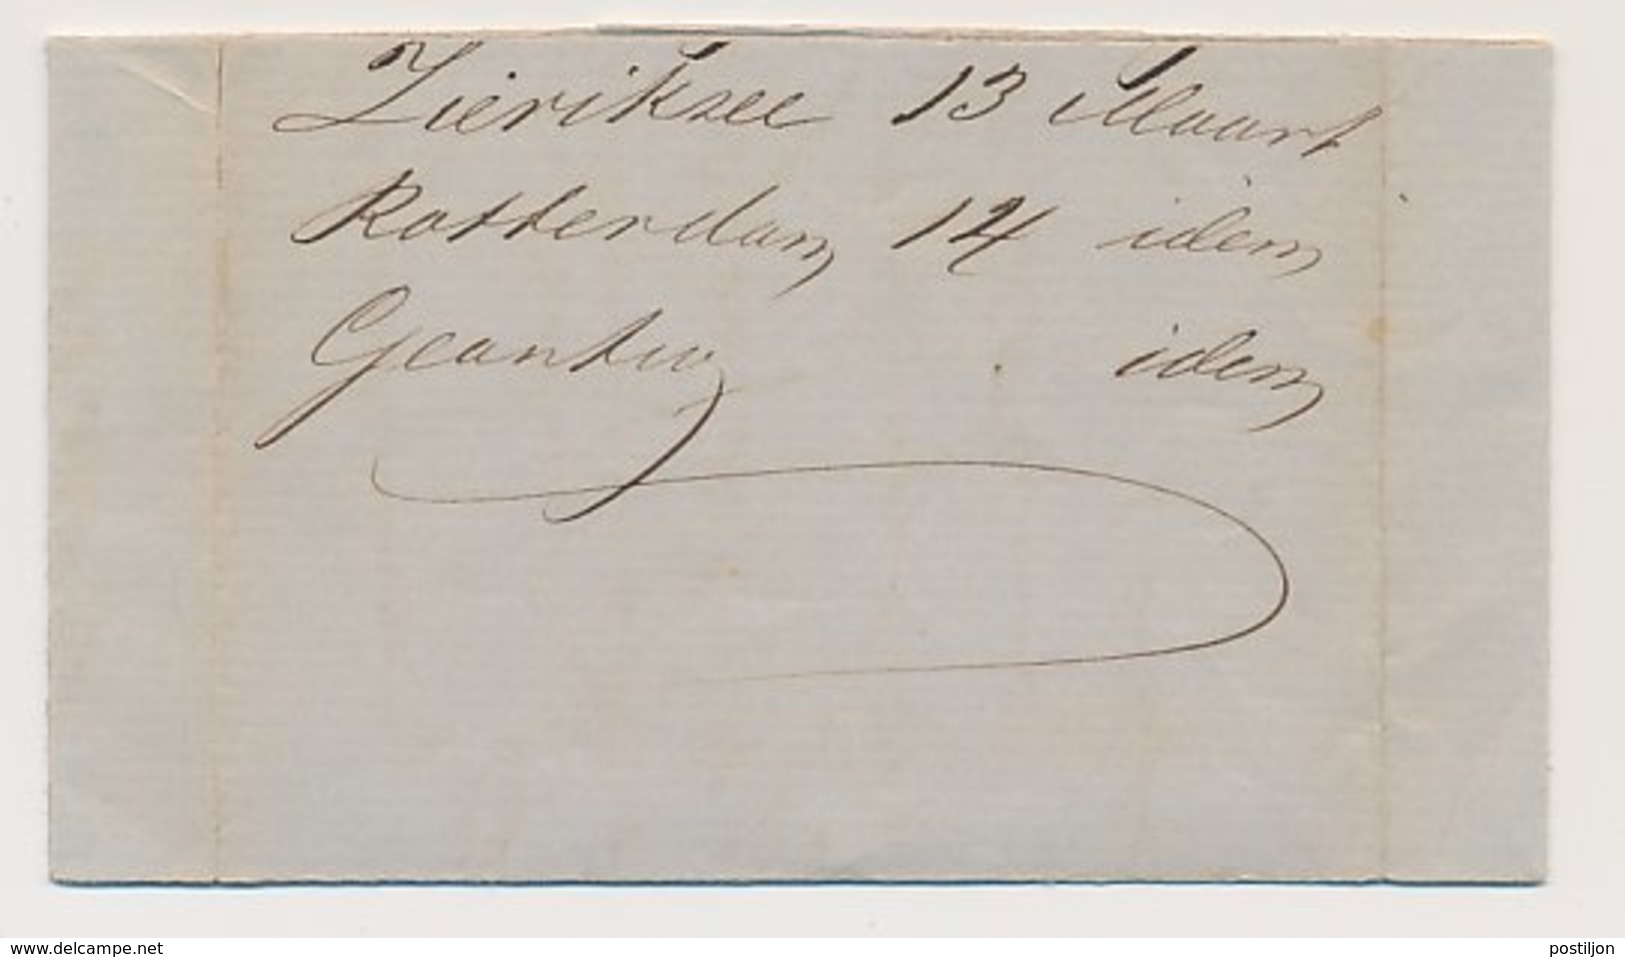 Zierikzee 13 Maart
Rotterdam 14 idem
Geantw idem
www.delcampe.net
postiljon